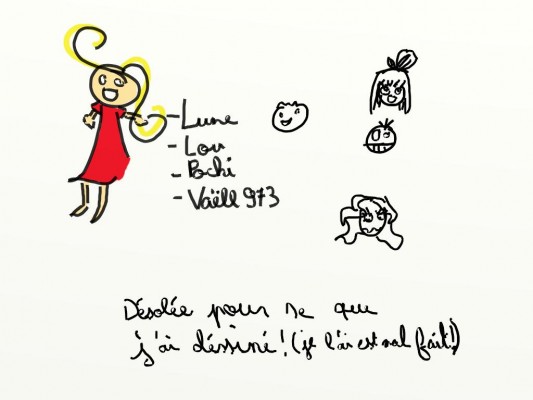 - Lune
- Lou
- Pochi
- Vaëll 973
Désolée pour se que
j'ai déssiné! (je l'ai est mal fait!)